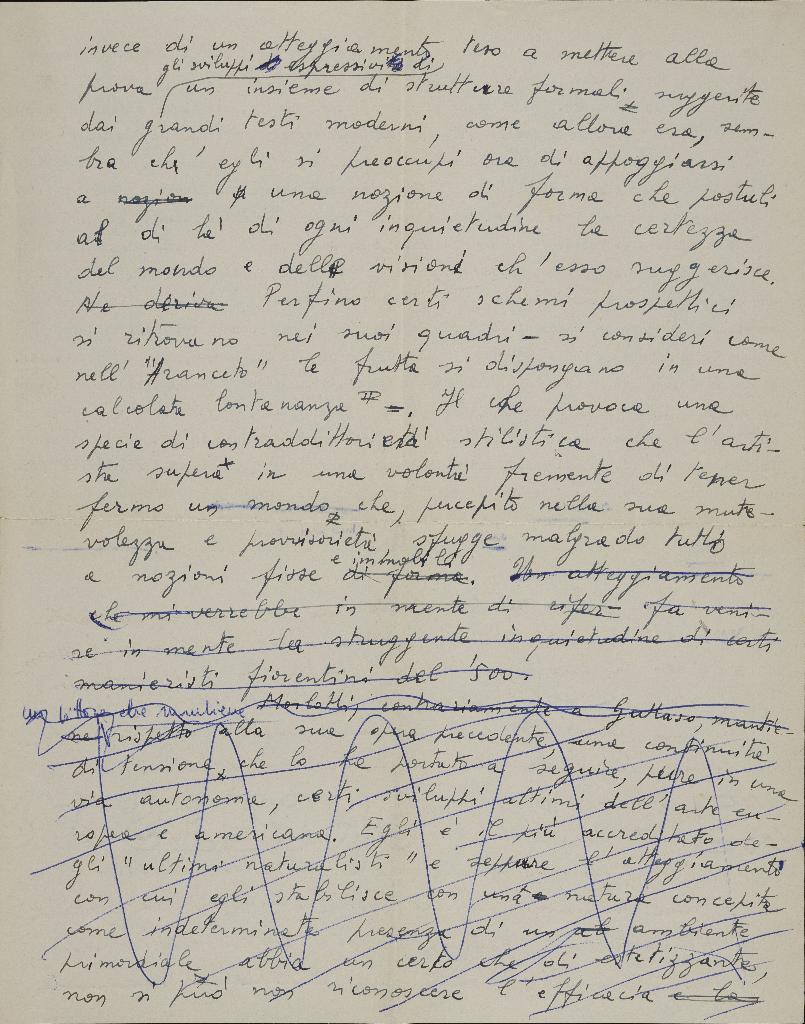 invece di un atteggiamento teso a mettere alla
gli sviluppi espressivi di
prova un insieme di strutture formali suggerite
dai grandi testi moderni, come allora era, sem-
bra che egli si preoccupi ora di appoggiarsi
a nozion a una nozione di forma che postuli
al di là di ogni inquietudine la certezza
del mondo e delle visioni ch'esso suggerisce.
Ne deriva Perfino certi schemi prospettici
si ritrovano nei suoi quadri - si consideri come
nell'"Aranceto" le frutta si dispongano in una
calcolata lontananza -. Il che provoca una
specie di contraddittorietà stilistica che l'arti-
sta supera in una volontà fremente di tener
fermo un mondo che, percepito nella sua mute-
volezza e provvisorietà sfugge malgrado tutto
e immobili
a nozioni fisse di forma. Un atteggiamento
che mi verrebbe in mente di rifer fa veni-
re in mente la struggente inquietudine di certi
manieristi fiorentini del '500.
un pittore che mantiene Morlotti, contrariamente a Guttuso, mantie-
ne rispetto alla sua opera precedente, una continuità
di tensione, che lo ha portato a seguire, pure in una
via autonoma, certi sviluppi ultimi dell'arte eu-
ropea e americana. Egli è il più accreditato de-
gli "ultimi naturalisti" e seppure l'atteggiamento
con cui egli stabilisce con una natura concepita
come indeterminata presenza di un ambiente
primordiale abbia un certo che di estetizzante,
non si può non riconoscere l'efficacia e la